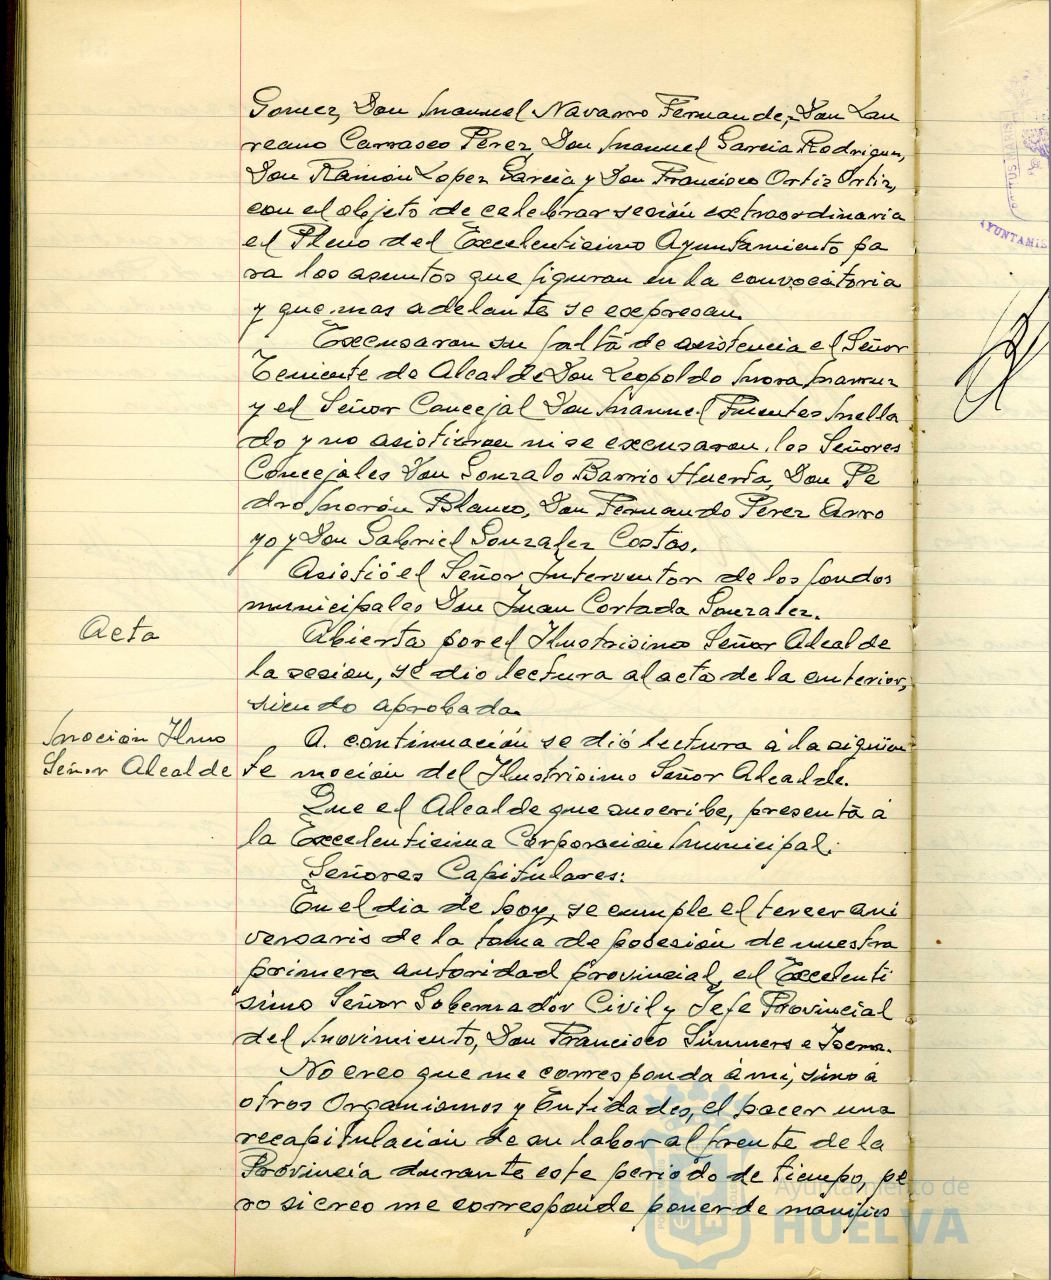 Gomez, Don Manuel Navarro Fernandez, Don Lau
reano Carrasco Perez, Don Manuel Garcia Rodriguez,
Don Ramón Lopez Garcia y Don Francisco Ortiz Ortiz,
con el objeto de celebrar sesión extraordinaria
el Pleno del Excelentisimo Ayuntamiento pa
ra los asuntos que figuran en la convocatoria
y que mas adelante se expresan.
Excusaron su falta de asistencia el Señor
Teniente de Alcalde Don Leopoldo Mora
y el Señor Concejal Don Manuel Fuentes Mella
do y no asistieron ni se excusaron, los Señores
Concejales Don Gonzalo Barrio Huerta, Don Pe
dro Morón Blanco, Don Fernando Perez Arro
yo y Don Gabriel Gonzalez Costas.
Asistió el Señor Interventor de los fondos
municipales Don Juan Cortada Gonzalez.
Acta
Abierta por el Ilustrisimo Señor Alcalde
la sesion, se dio lectura al acta de la anterior,
siendo aprobada.
Moción Ilmo
Señor Alcalde
A continuación se dió lectura á la siguien
te moción del Ilustrisimo Señor Alcalde.
Que el Alcalde que suscribe, presenta á
la Excelentisima Corporación Municipal.
Señores Capitulares:
En el dia de hoy, se cumple el tercer ani
versario de la toma de posesión de nuestra
primera autoridad provincial, el Excelenti
simo Señor Gobernador Civil y Jefe Provincial
del Movimiento, Don Francisco Summers e Isern.
No creo que me corresponda á mi, sino á
otros Organismos y Entidades, el hacer una
recapitulación de su labor al frente de la
Provincia durante este periodo de tiempo, pe
ro si creo me corresponde poner de manifies
Ayuntamiento de
HUELVA